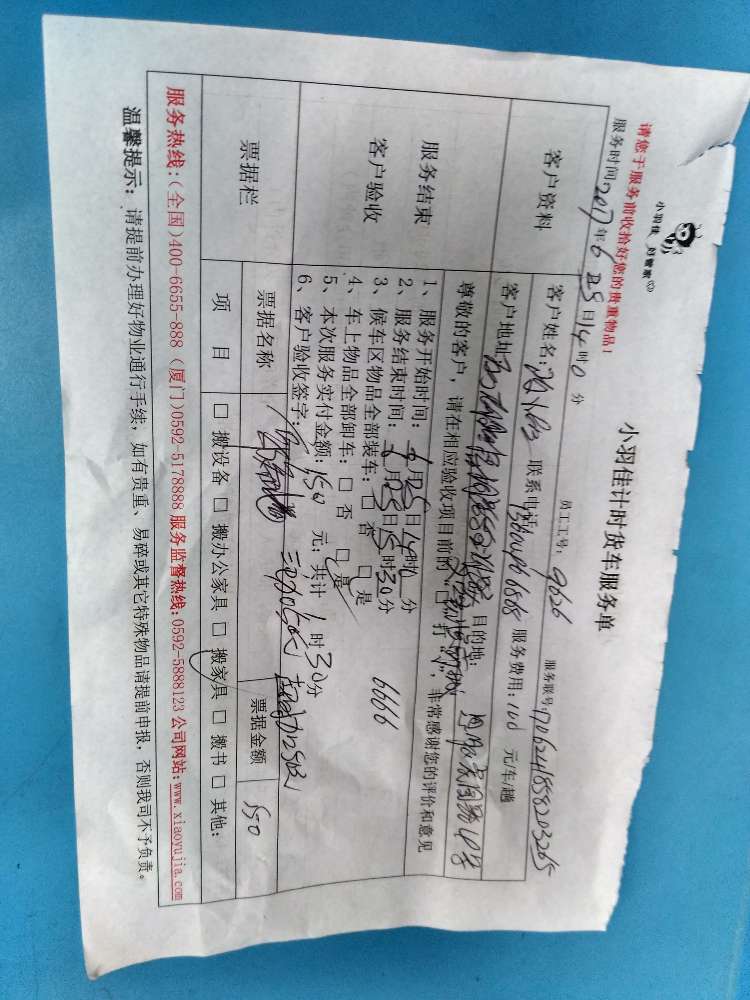 小羽佳 好管家
小羽佳计时货车服务单
请您于服务前收拾好您的贵重物品！
员工工号：9626
服务联号：170624858203265
服务时间2017年6月25日14时0分
客户资料
客户姓名： 联系电话 服务费用：100元/车/趟
客户地址： 目的地：
尊敬的客户，请在相应验收项目前的 □ 打“√”，非常感谢您的评价和意见
服务结束
客户验收
1、服务开始时间：6月25日14时0分
2、服务结束时间：6月25日15时30分
3、候车区物品全部装车：□ 否 □ 是 6666
4、车上物品全部卸车：□ 否 □ 是
5、本次服务实付金额：150 元；共计 1 时30分
6、客户验收签字：
票据栏
票据名称 票据金额 150
项 目 □ 搬设备 □ 搬办公家具 □ 搬家具 □ 搬书 □ 其他：
服务热线：(全国)400-6655-888 (厦门)0592-5178888 服务监督热线：0592-5888123 公司网站：www.xiaoyujia.com
温馨提示：请提前办理好物业通行手续，如有贵重、易碎或其它特殊物品请提前申报，否则我司不予负责。